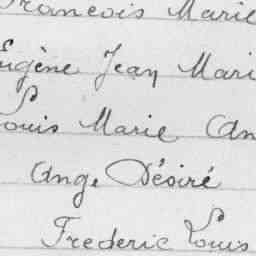 Francois Marie
Eugène Jean Mari
Louis Marie An
Ange Désiré
Frederic Louis